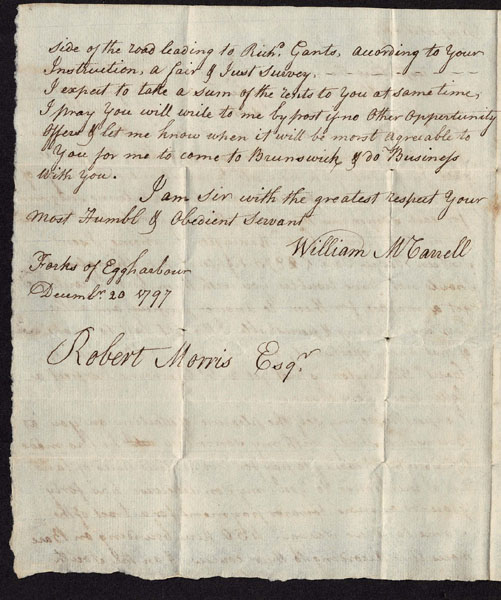 side of the road leading to Richd. Gants, according to Your
Instruction, a fair & Just Survey.
I expect to take a sum of the rents to You at same time,
I pray You will write to me by post if no Other Opportunity
Offers & let me know when it will be most agreeable to
You for me to come to Brunswick & do Business
With You.
I am sir with the greatest respect Your
Most Humbl & Obedient Servant
William McCarrell
Forks of Eggharbour
Decembr. 20 1797
Robert Morris Esqr